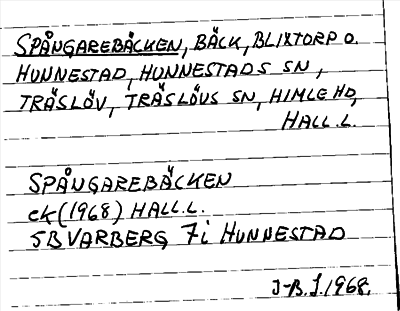 SPÅNGAREBÄCKEN, BÄCK, BLIXTORP O.
HUNNESTAD, HUNNESTADS SN,
TRÄSLÖV, TRÄSLÖVS SN, HIMLE HD,
HALL.L.
SPÅNGAREBÄCKEN
ek(1968) HALL.L.
5B VARBERG 7i HUNNESTAD
J-B.J.1968.